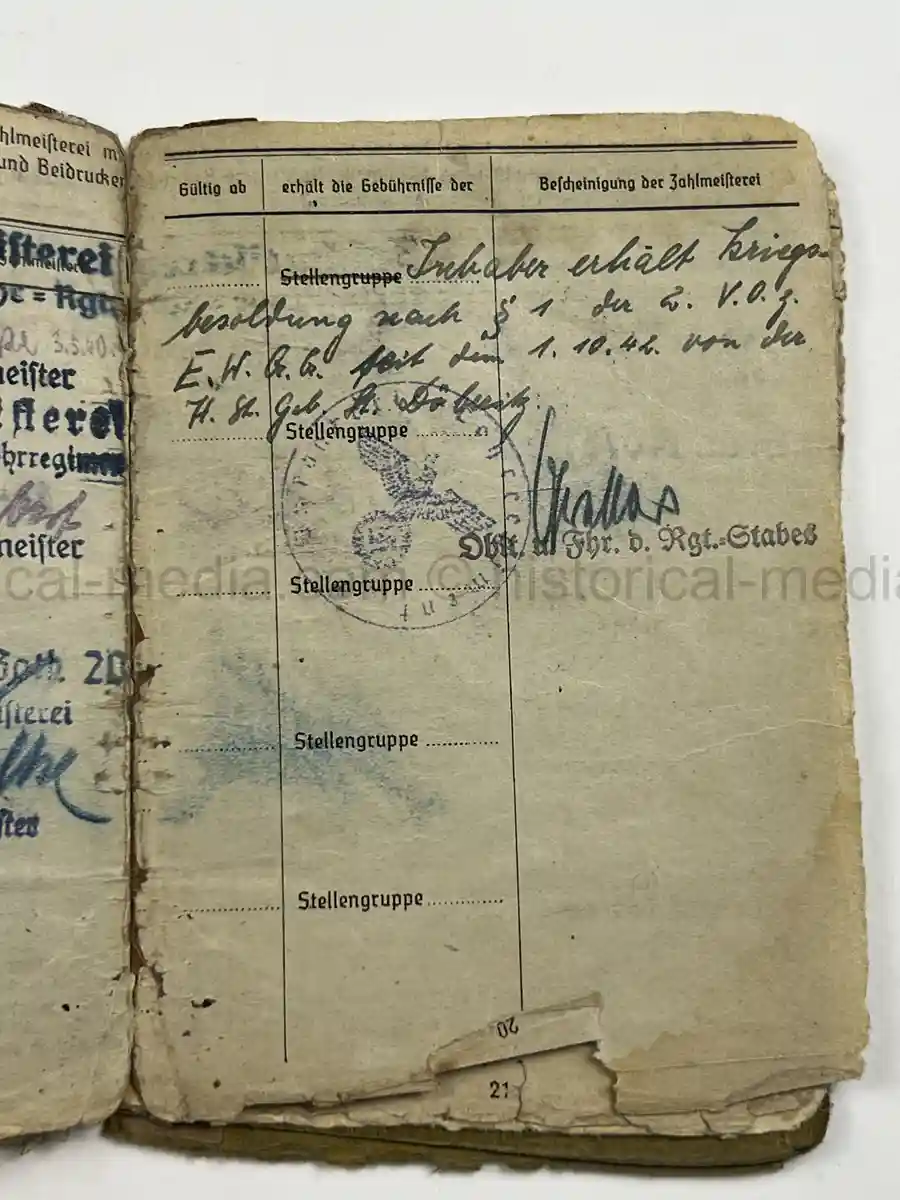 hlmeisterei
und Beidrucken
isterei
Zahlmeister
Rgt.
3.5.40.
meister
isterei
hrregiment
meister
2D
isterei
ster
Gültig ab
erhält die Gebührnisse der
Bescheinigung der Zahlmeisterei
Stellengruppe Inhaber erhält Kriegs-
besoldung nach § 1 der 2. V.O. z.
E.W.G.G. seit dem 1.10.42. von der
H. St. Geb. St. Döberitz.
Stellengruppe
Oblt. u. Fhr. d. Rgt.-Stabes
Stellengruppe
Stellengruppe
Stellengruppe
20
21
cal-media.com © historical-media